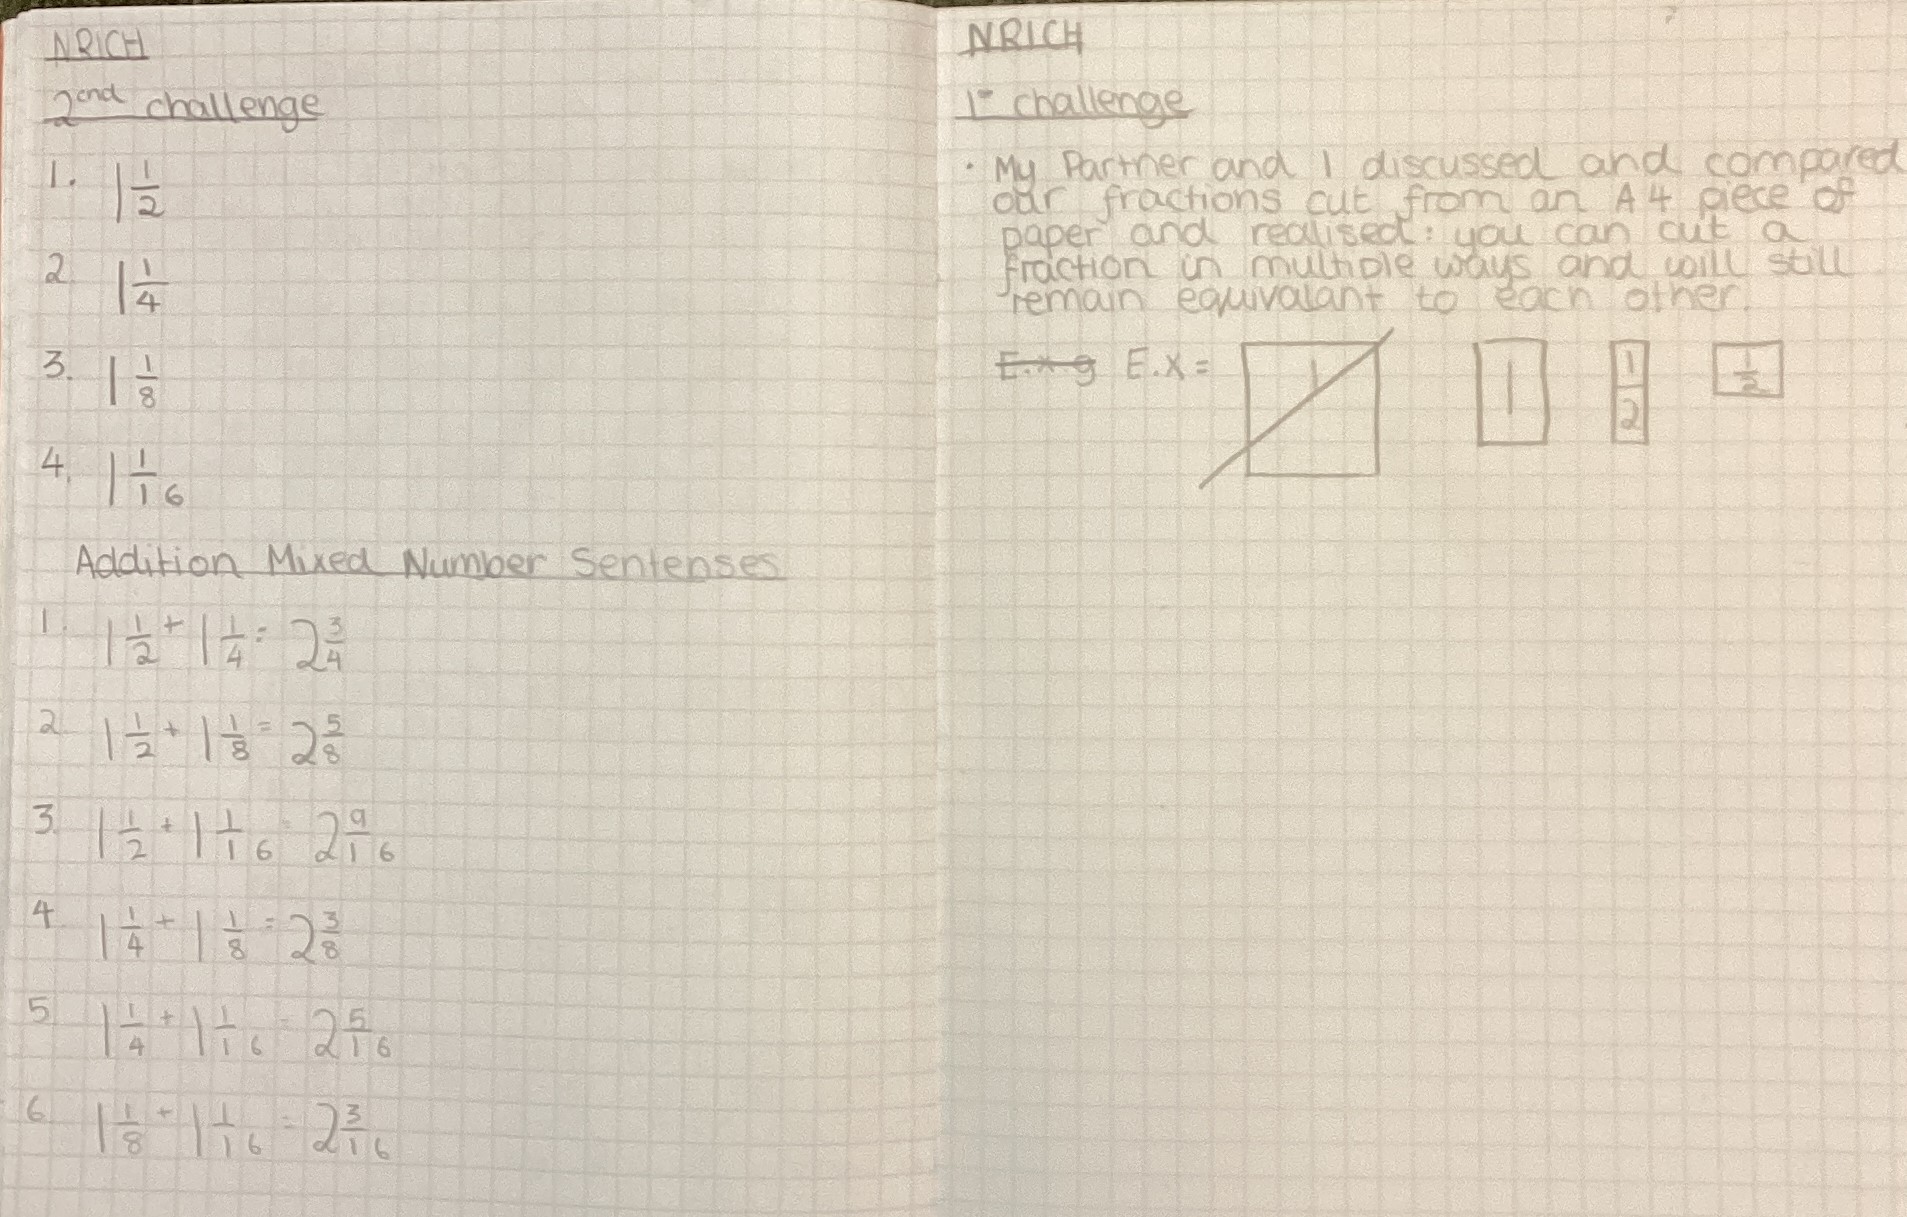 NRICH
2end challenge
1. 1 1/2
2 1 1/4
3. 1 1/8
4. 1 1/16
Addition Mixed Number Sentenses
1. 1 1/2 + 1 1/4 = 2 3/4
2 1 1/2 + 1 1/8 = 2 5/8
3. 1 1/2 + 1 1/16 = 2 9/16
4. 1 1/4 + 1 1/8 = 2 3/8
5 1 1/4 + 1 1/16 = 2 5/16
6 1 1/8 + 1 1/16 = 2 3/16
NRICH
1st challenge
• My Partner and I discussed and compared
our fractions cut from an A4 piece of
paper and realised: you can cut a
fraction in multiple ways and will still
remain equivalant to each other.
E.x g E.X = 1 1 1/2 1/2